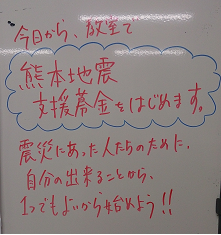 今日から、教室で
熊本地震
支援募金をはじめます。
震災にあった人たちのために、
自分の出来ることから、
1つでもよいから始めよう!!